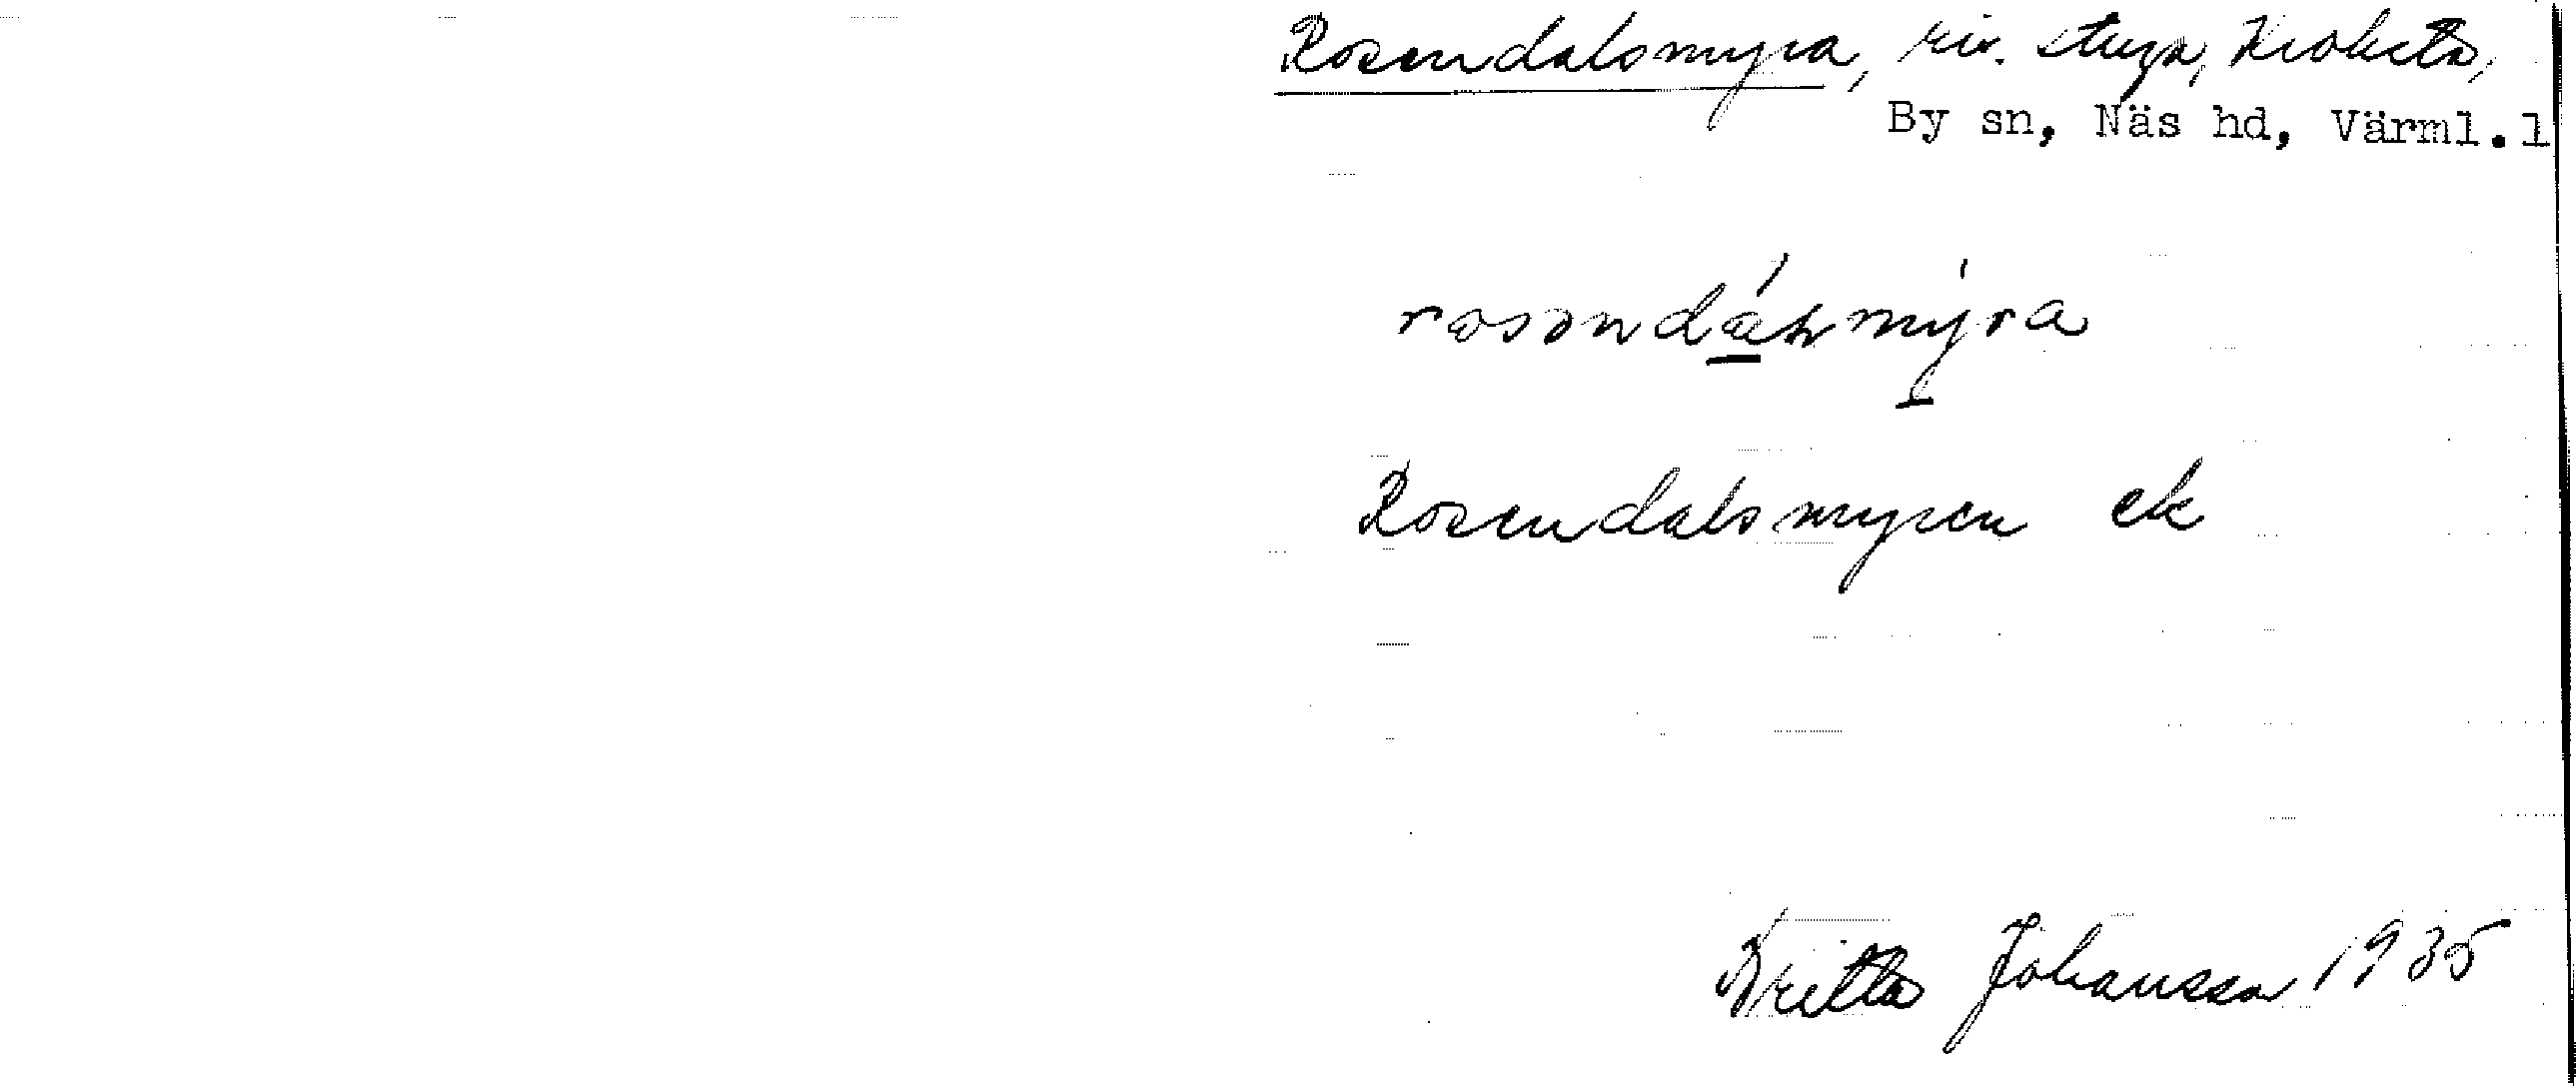 Rosendalsmyra, riv. stuga, Kroksta,
By sn, Näs hd, Värml.l
Rosendalsmyren ek
Britta Johansson 1935